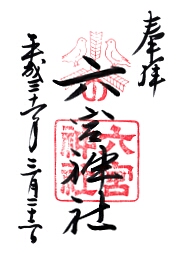 奉拝
六宮神社
六宮神社
平成三十一年三月二十六日